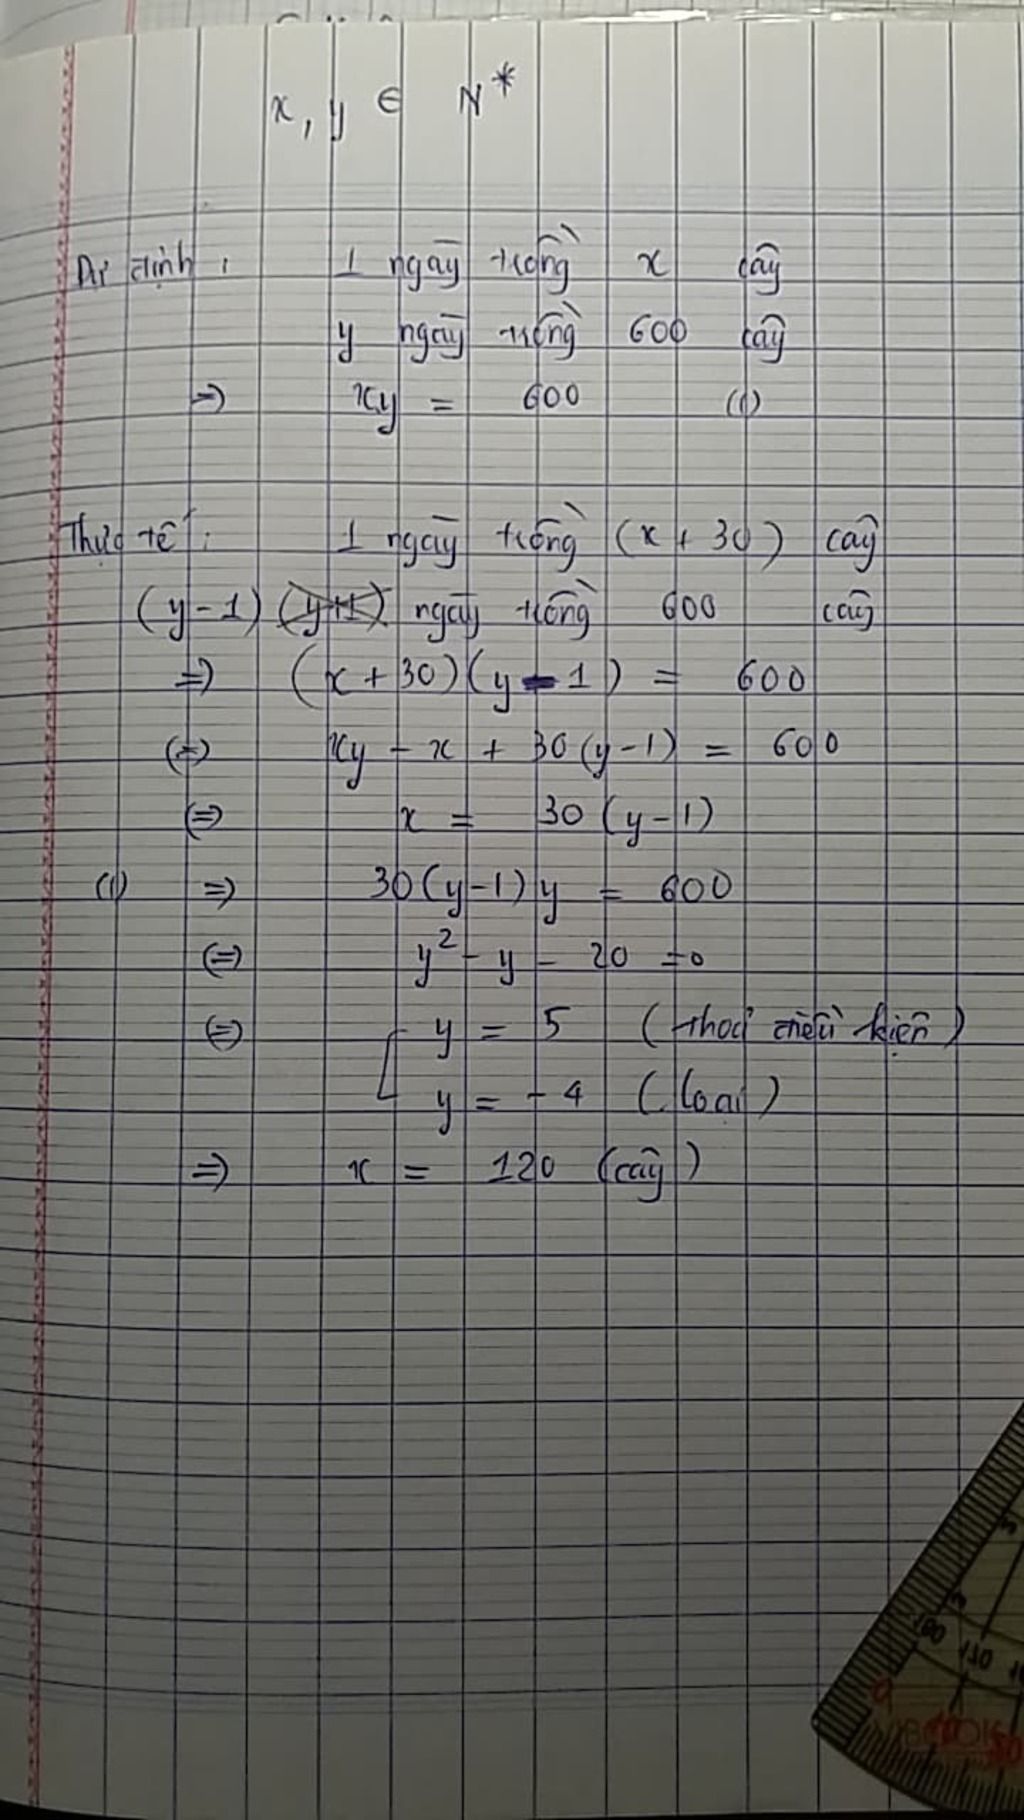 x, y ∈ N*
Dự định : 1 ngày trồng x cây
y ngày trồng 600 cây
=> xy = 600 (1)
Thực tế : 1 ngày trồng (x + 30) cây
(y - 1) (y+1) ngày trồng 600 cây
=> (x + 30)(y - 1) = 600
(=) xy - x + 30(y-1) = 600
(=) x = 30(y-1)
(1) => 30(y-1)y = 600
(=) y² - y - 20 = 0
(=) [ y = 5 (thoả điều kiện)
y = -4 (loại)
=> x = 120 (cây)
180 170